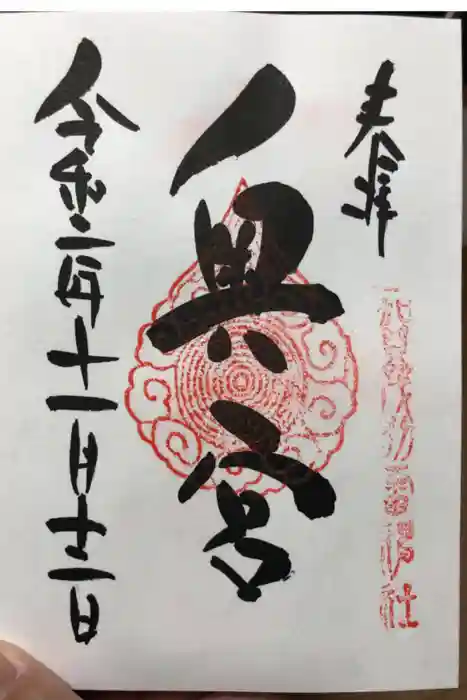 奉拝
奥宮
令和二年十一月十二日